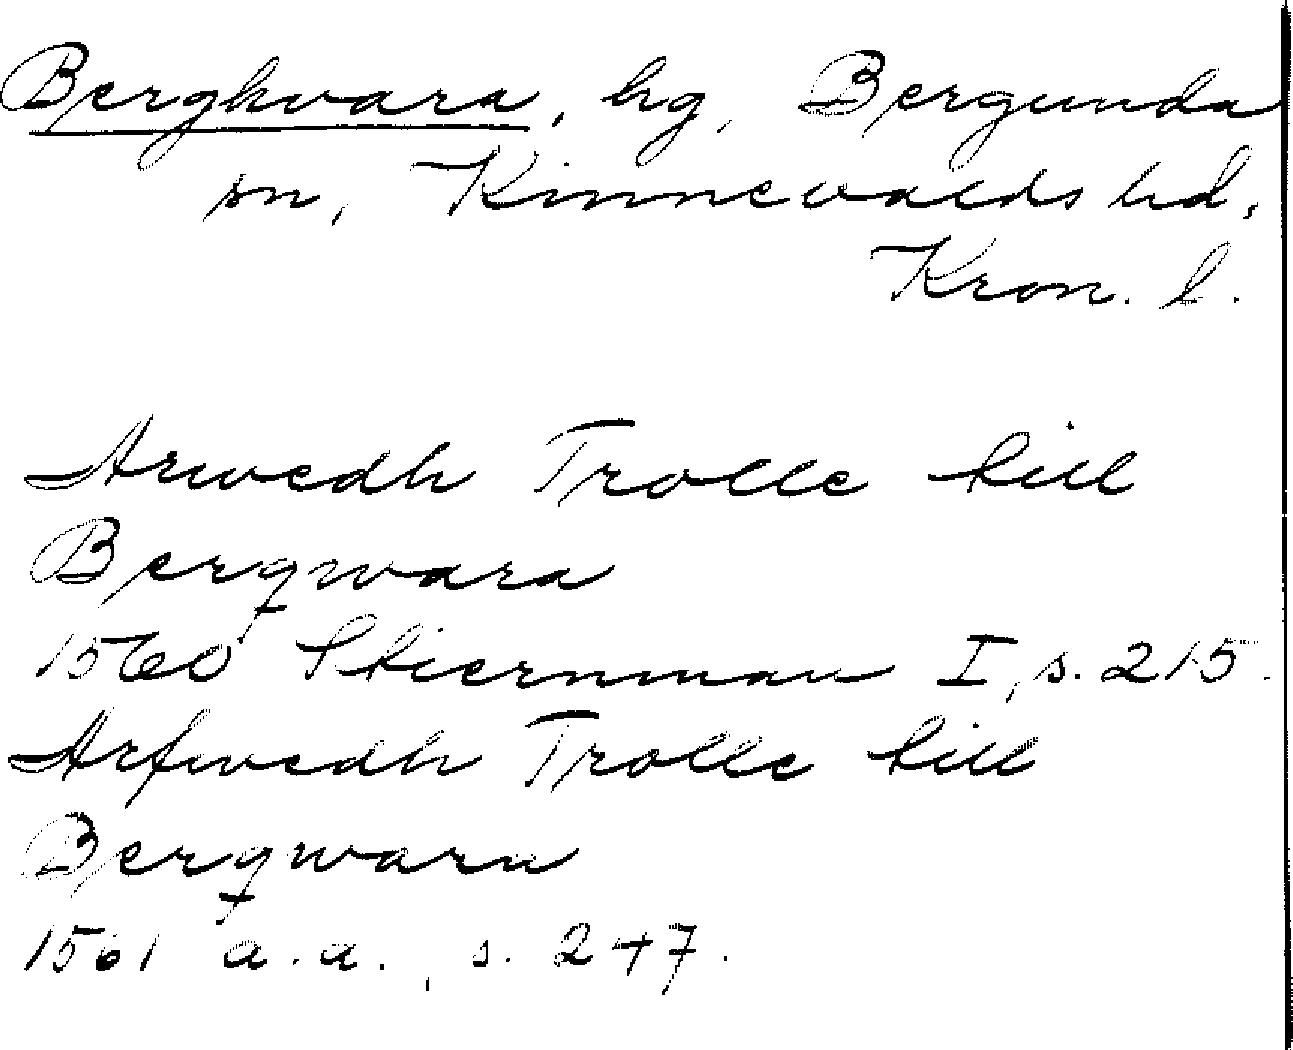 Bergkvara, hg, Bergunda
sn, Kinnevalds hd,
Kron. l.
Arwedh Trolle till
Bergwara
1560 Stiernman I, s. 215.
Arfwedh Trolle till
Bergwara
1561 a.a., s. 247.